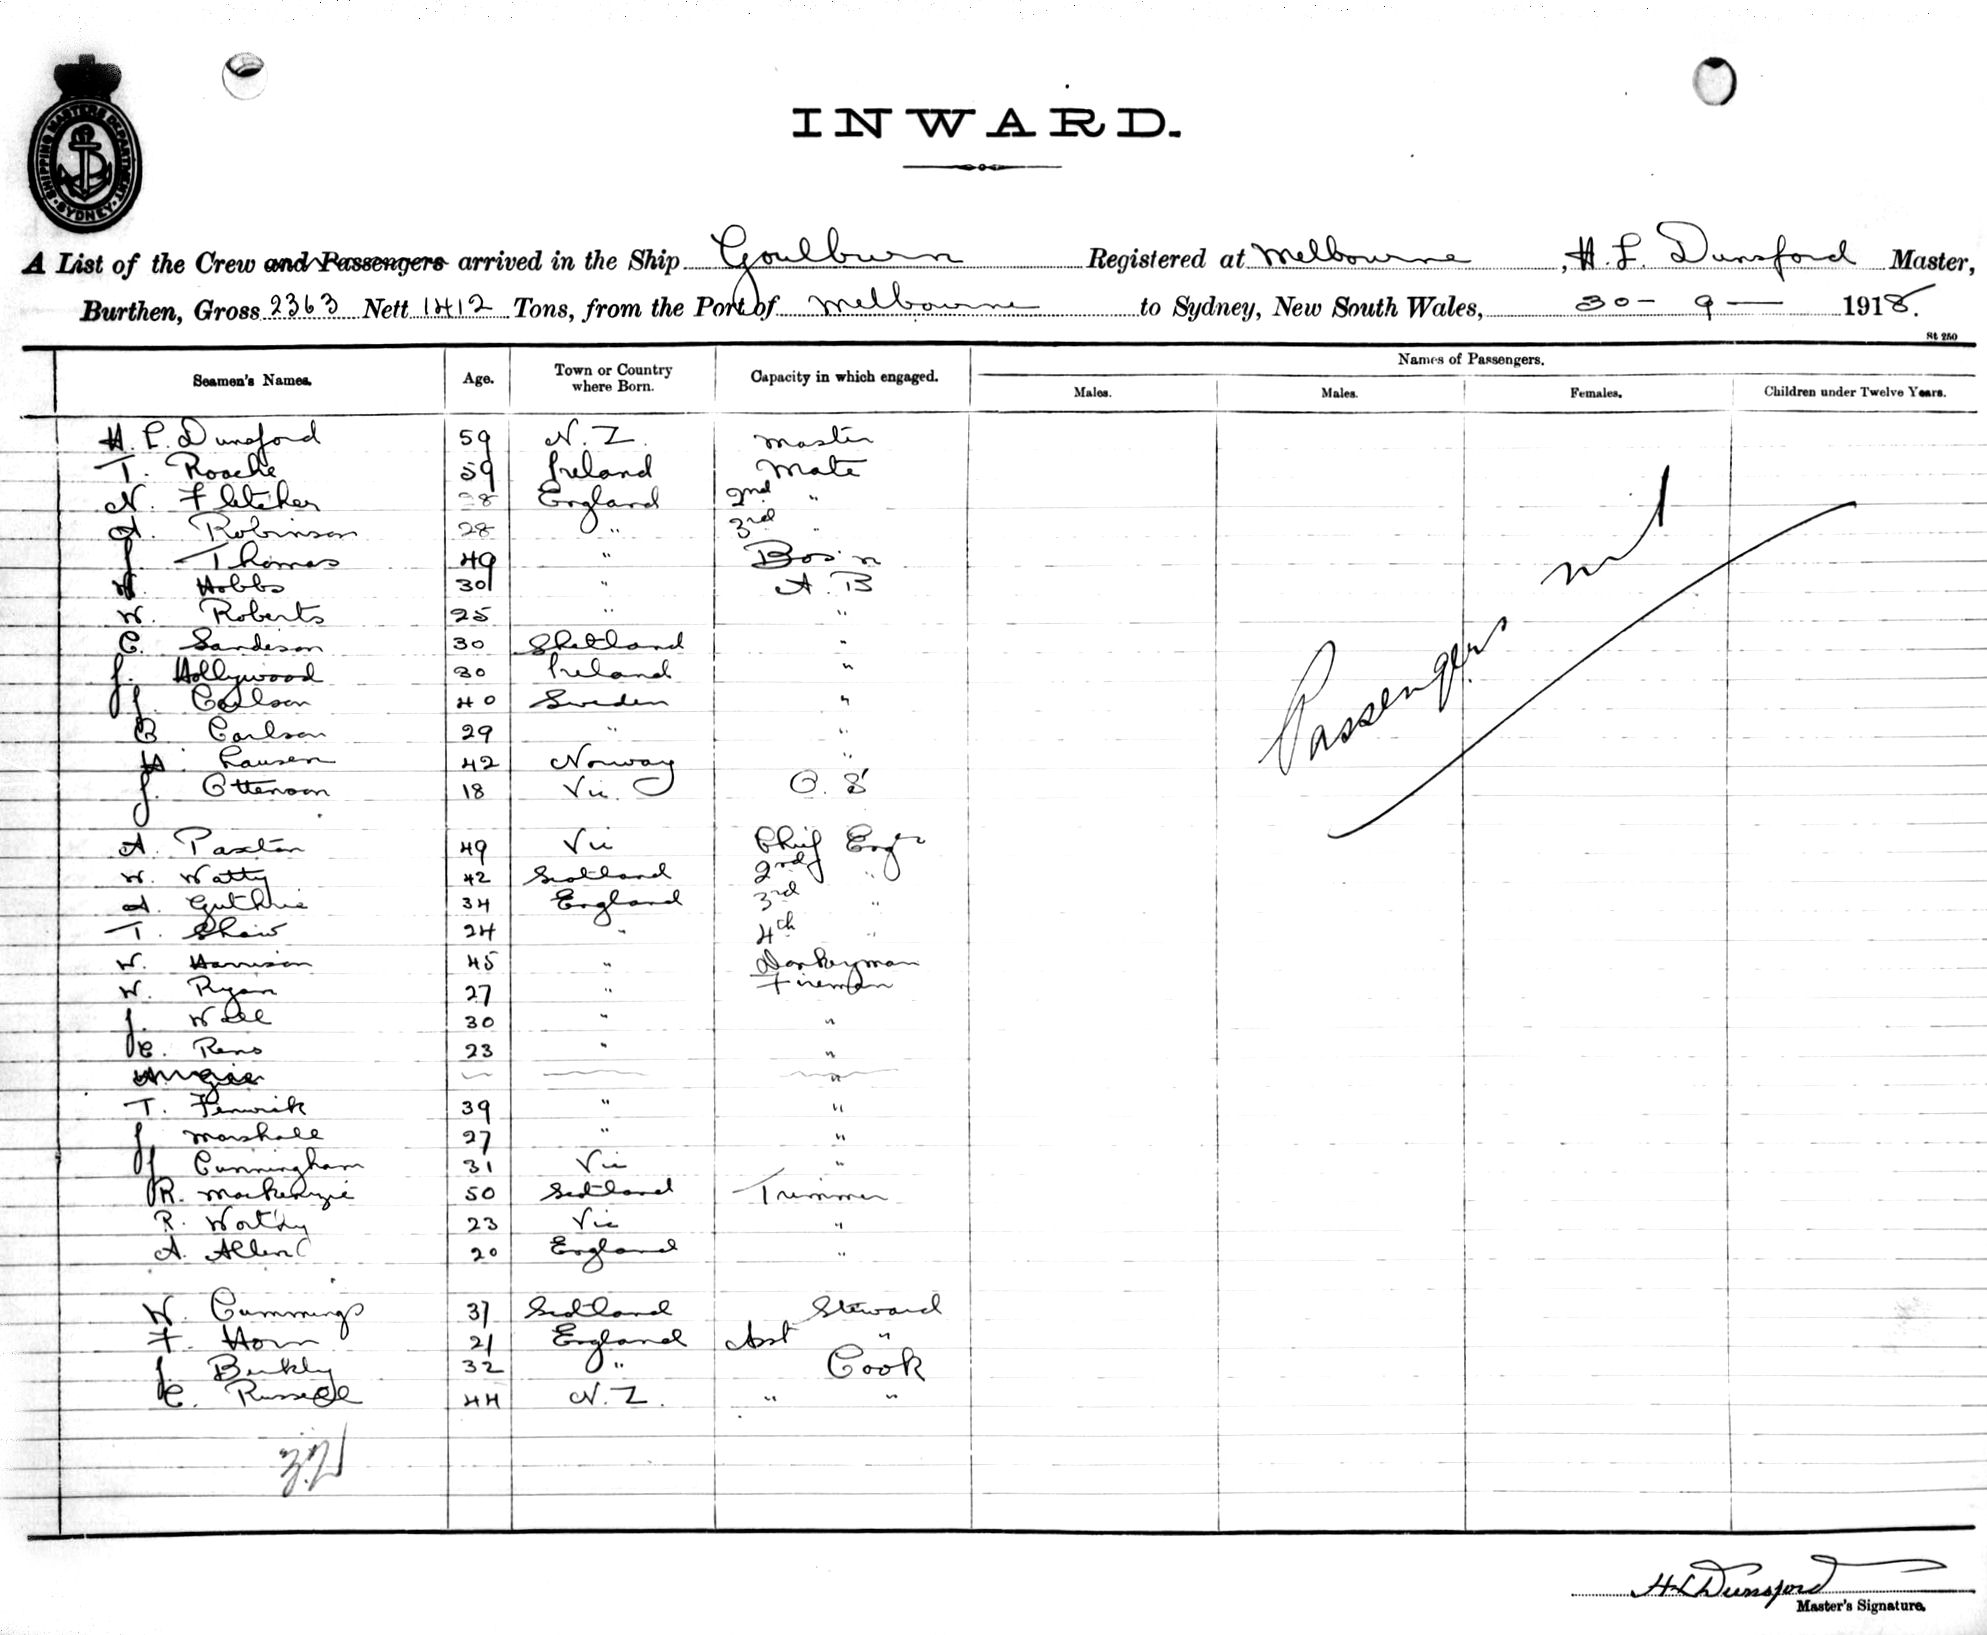 SHIPPING MASTERS DEPARTMENT
SYDNEY
INWARD.
A List of the Crew and Passengers arrived in the Ship Goulburn Registered at Melbourne, H. L. Dunsford Master,
Burthen, Gross 2363 Nett 1412 Tons, from the Port of Melbourne to Sydney, New South Wales, 30 - 9 - 1918.
St 250
Seamen's Names. Age. Town or Country where Born. Capacity in which engaged. Names of Passengers.
Males. Males. Females. Children under Twelve Years.
H. L. Dunsford 59 N. Z. Master
T. Roache 59 Ireland Mate
N. Fletcher 28 England 2nd "
A. Robinson 28 " 3rd "
J. Thomas 49 " Bos'n
W. Hobbs 30 " A. B
W. Roberts 25 " "
C. Sandison 30 Shetland "
J. Hollywood 30 Ireland "
J. Carlson 40 Sweden "
B. Carlson 29 " "
H. Lausen 42 Norway "
J. Ottenson 18 Vic. O. S
A. Paxton 49 Vic Chief Engr
W. Watty 42 Scotland 2nd "
A. Guthrie 34 England 3rd "
T. Shaw 24 " 4th "
W. Harrison 45 " Donkeyman
W. Ryan 27 " Fireman
J. Wall 30 " "
C. Rens 23 " "
"
T. Fenwick 39 " "
J. Marshall 27 " "
J. Cunningham 31 Vic "
R. Mackenzie 50 Scotland Trimmer
R. Worthy 23 Vic "
A. Allen 20 England "
W. Cummings 37 Scotland Steward
F. Horn 21 England Asst "
J. Berkly 32 " Cook
C. Russell 44 N. Z. " "
Passengers nil
32
H L Dunsford
Master's Signature.